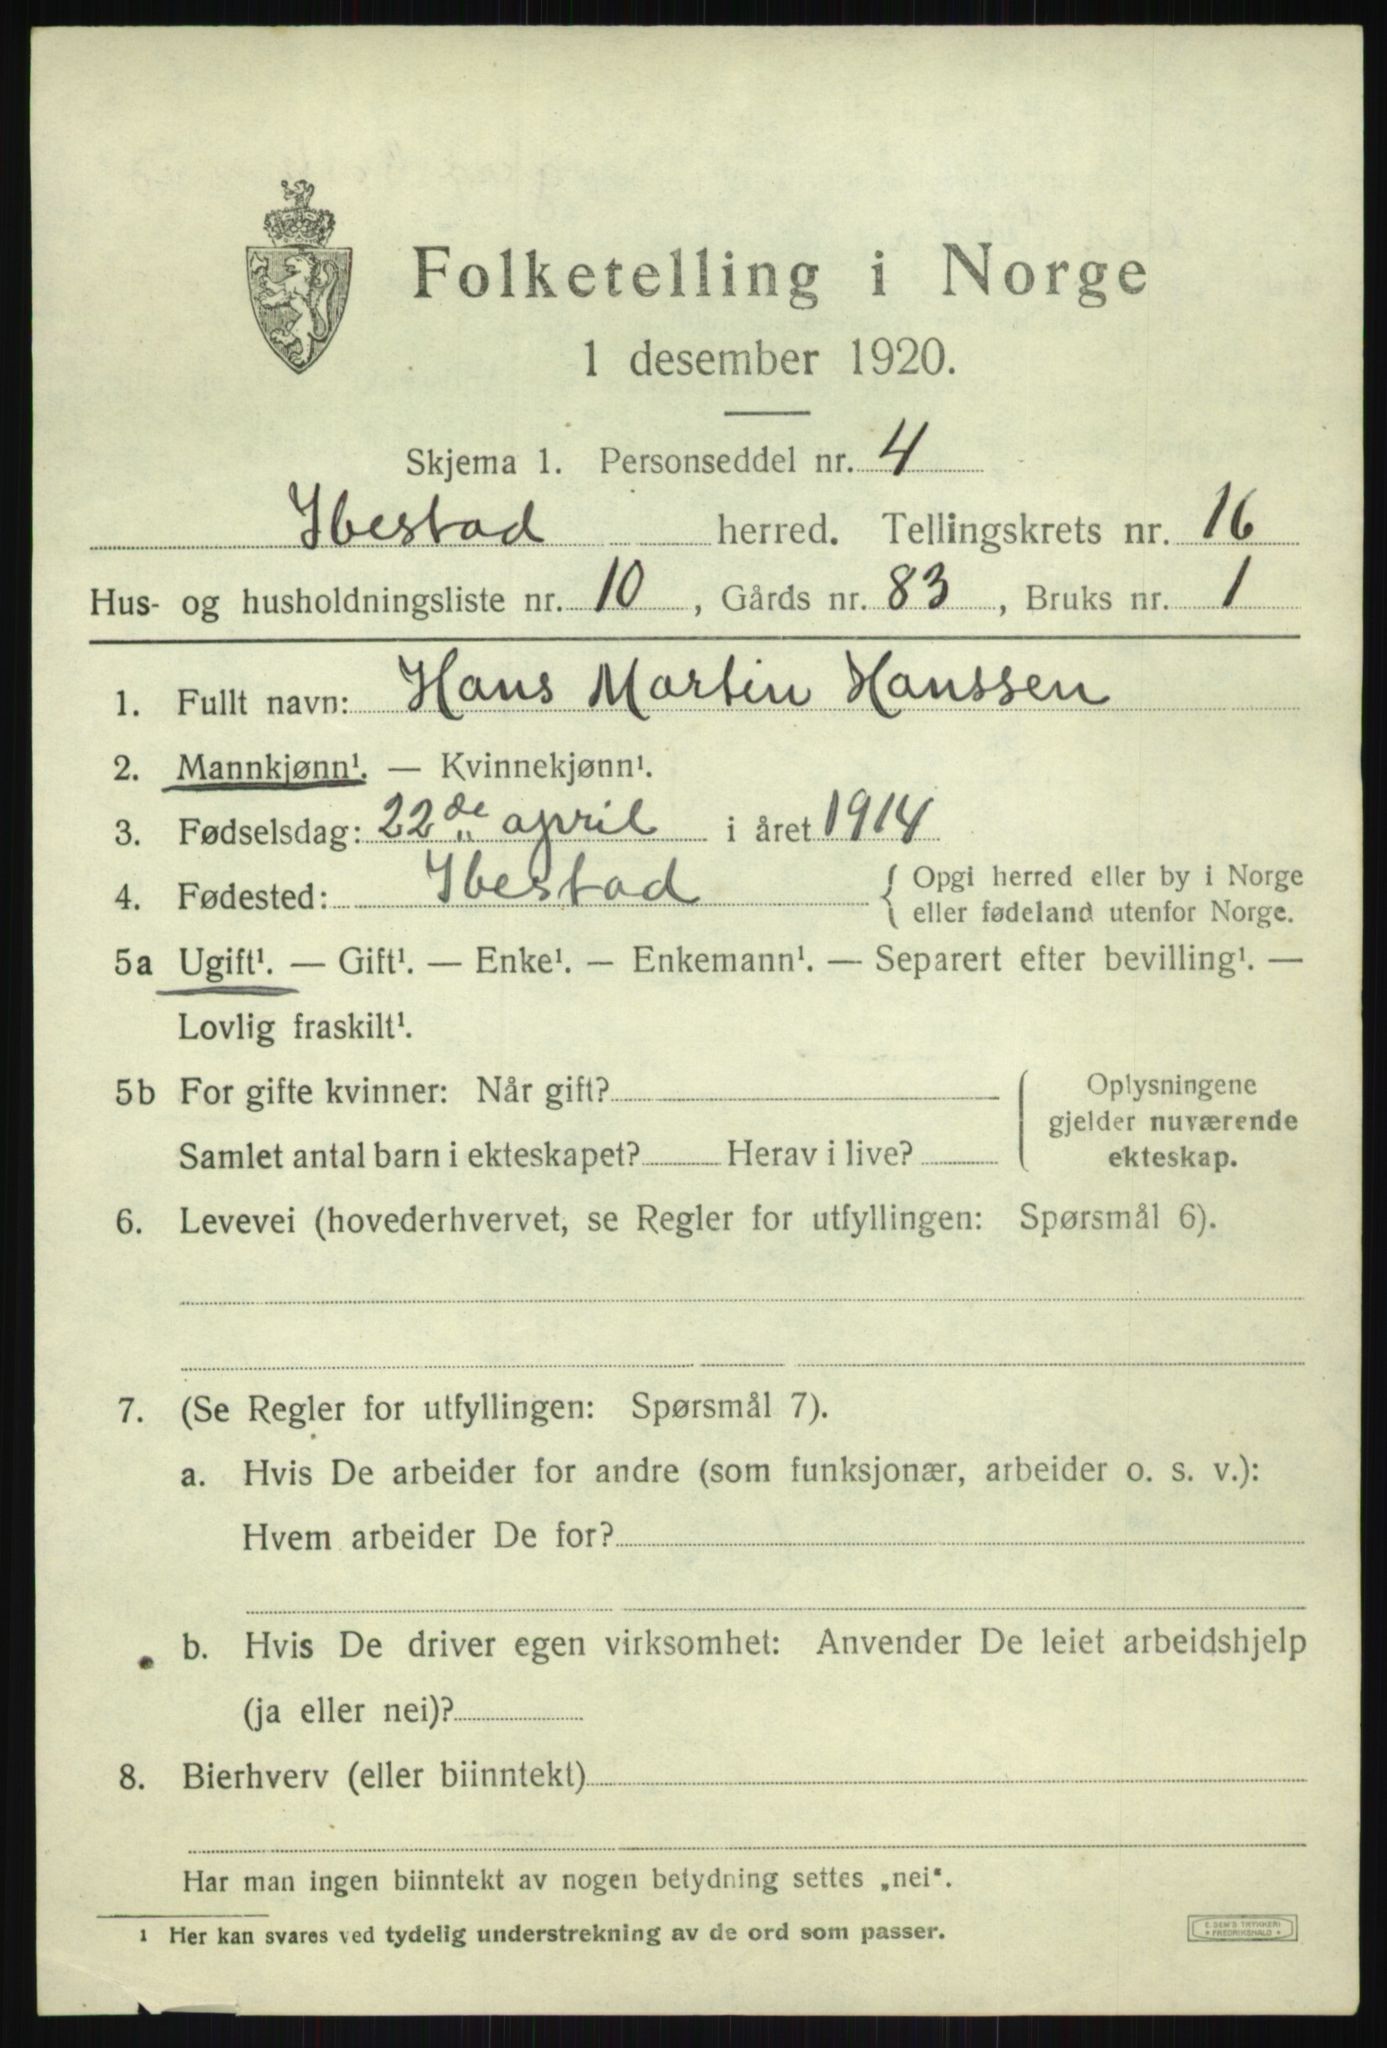 Folketelling i Norge
1 desember 1920.
Skjema 1. Personseddel nr. 4
Ibestad herred. Tellingskrets nr. 16
Hus- og husholdningsliste nr. 10, Gårds nr. 83, Bruks nr. 1
1. Fullt navn: Hans Martin Hanssen
2. Mannkjønn¹. — Kvinnekjønn¹.
3. Fødselsdag: 22de april i året 1914
4. Fødested: Ibestad { Opgi herred eller by i Norge
eller fødeland utenfor Norge.
5a Ugift¹. — Gift¹. — Enke¹. — Enkemann¹. — Separert efter bevilling¹. —
Lovlig fraskilt¹.
5b For gifte kvinner: Når gift? Oplysningene
gjelder nuværende
Samlet antal barn i ekteskapet? Herav i live? ekteskap.
6. Levevei (hovederhvervet, se Regler for utfyllingen: Spørsmål 6).
7. (Se Regler for utfyllingen: Spørsmål 7).
a. Hvis De arbeider for andre (som funksjonær, arbeider o. s. v.):
Hvem arbeider De for?
b. Hvis De driver egen virksomhet: Anvender De leiet arbeidshjelp
(ja eller nei)?
8. Bierhverv (eller biinntekt)
Har man ingen biinntekt av nogen betydning settes „nei“.
¹ Her kan svares ved tydelig understrekning av de ord som passer.
E. SEM'S TRYKKERI
* FREDRIKSHALD *